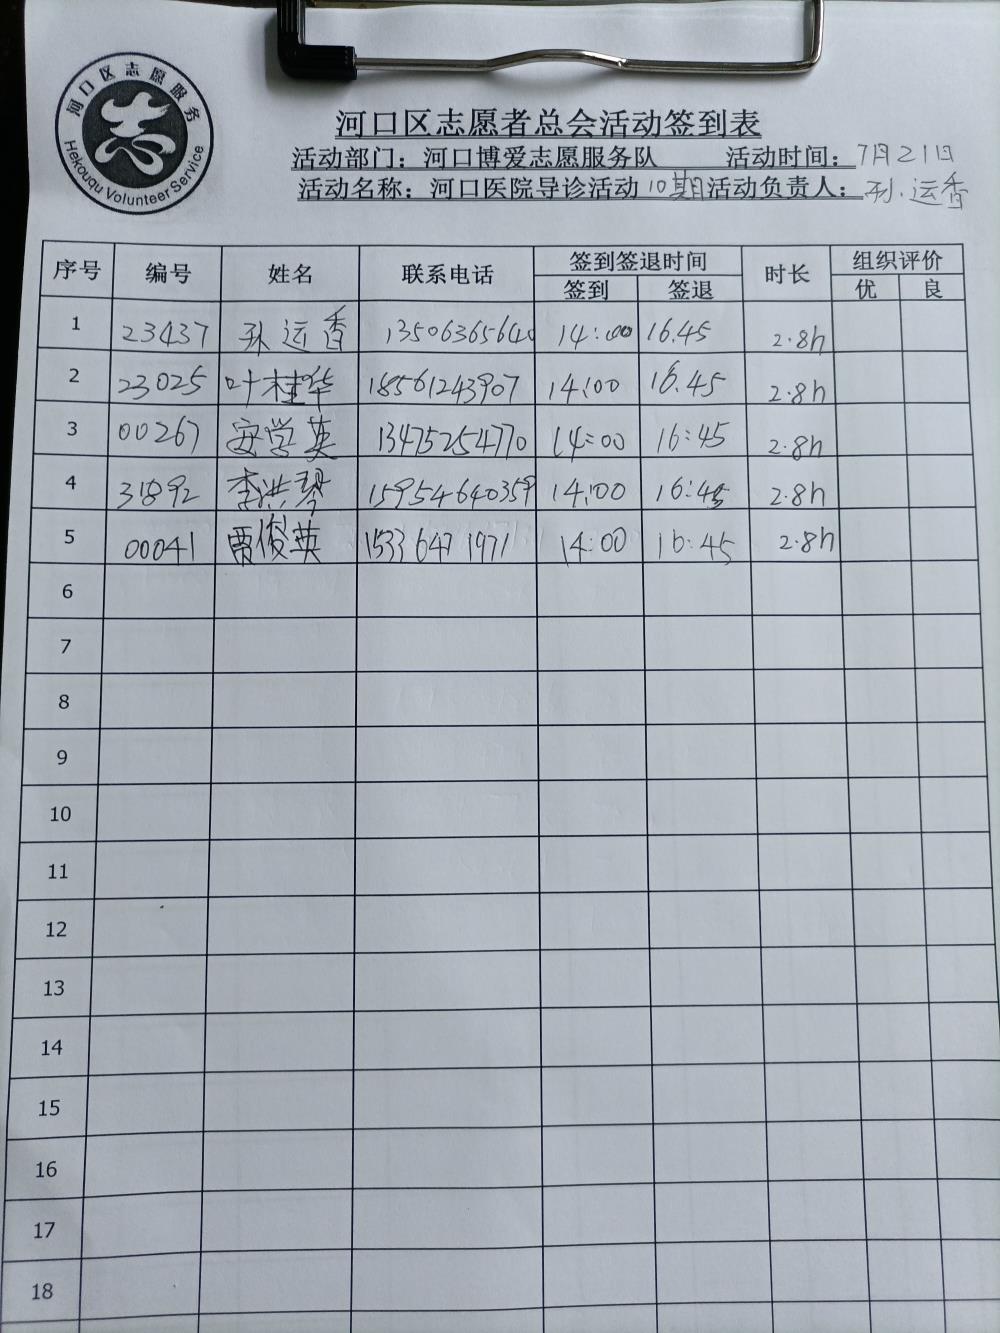 河口区志愿服务
Hekouqu Volunteer Service
河口区志愿者总会活动签到表
活动部门：河口博爱志愿服务队 活动时间：7月21日
活动名称：河口医院导诊活动10期 活动负责人：孙运香
序号 编号 姓名 联系电话 签到签退时间 时长 组织评价
签到 签退 优 良
1 23437 孙运香 13506365640 14:00 16.45 2.8h
2 23025 叶桂华 18561243907 14:00 16.45 2.8h
3 00267 安学英 13475254770 14:00 16:45 2.8h
4 31892 李洪琴 15954640359 14:00 16:45 2.8h
5 00041 贾俊英 15336471971 14:00 16:45 2.8h
6
7
8
9
10
11
12
13
14
15
16
17
18